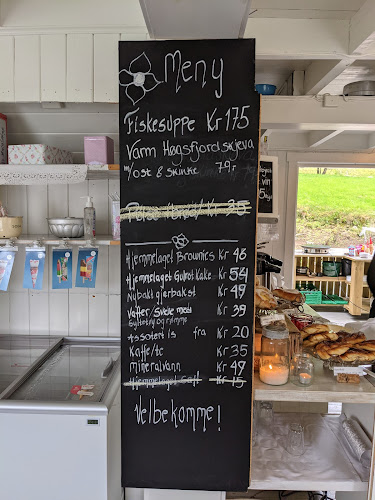 Meny
Fiskesuppe Kr 175
Varm Høgsfjordskjeva
m/ost & skinke 79,-
Kr 35
Hjemmelaget Brownies Kr 48
Hjemmelaget Gulrot Kake Kr 54
Nybakt gjærbakst Kr 49
Vaffel/Svele med Kr 39
Syltetøy og rømme
Assortert is fra Kr 20
Kaffe/te Kr 35
mineralvann Kr 49
Hjemmelaget Saft Kr 15
Velbekomme!